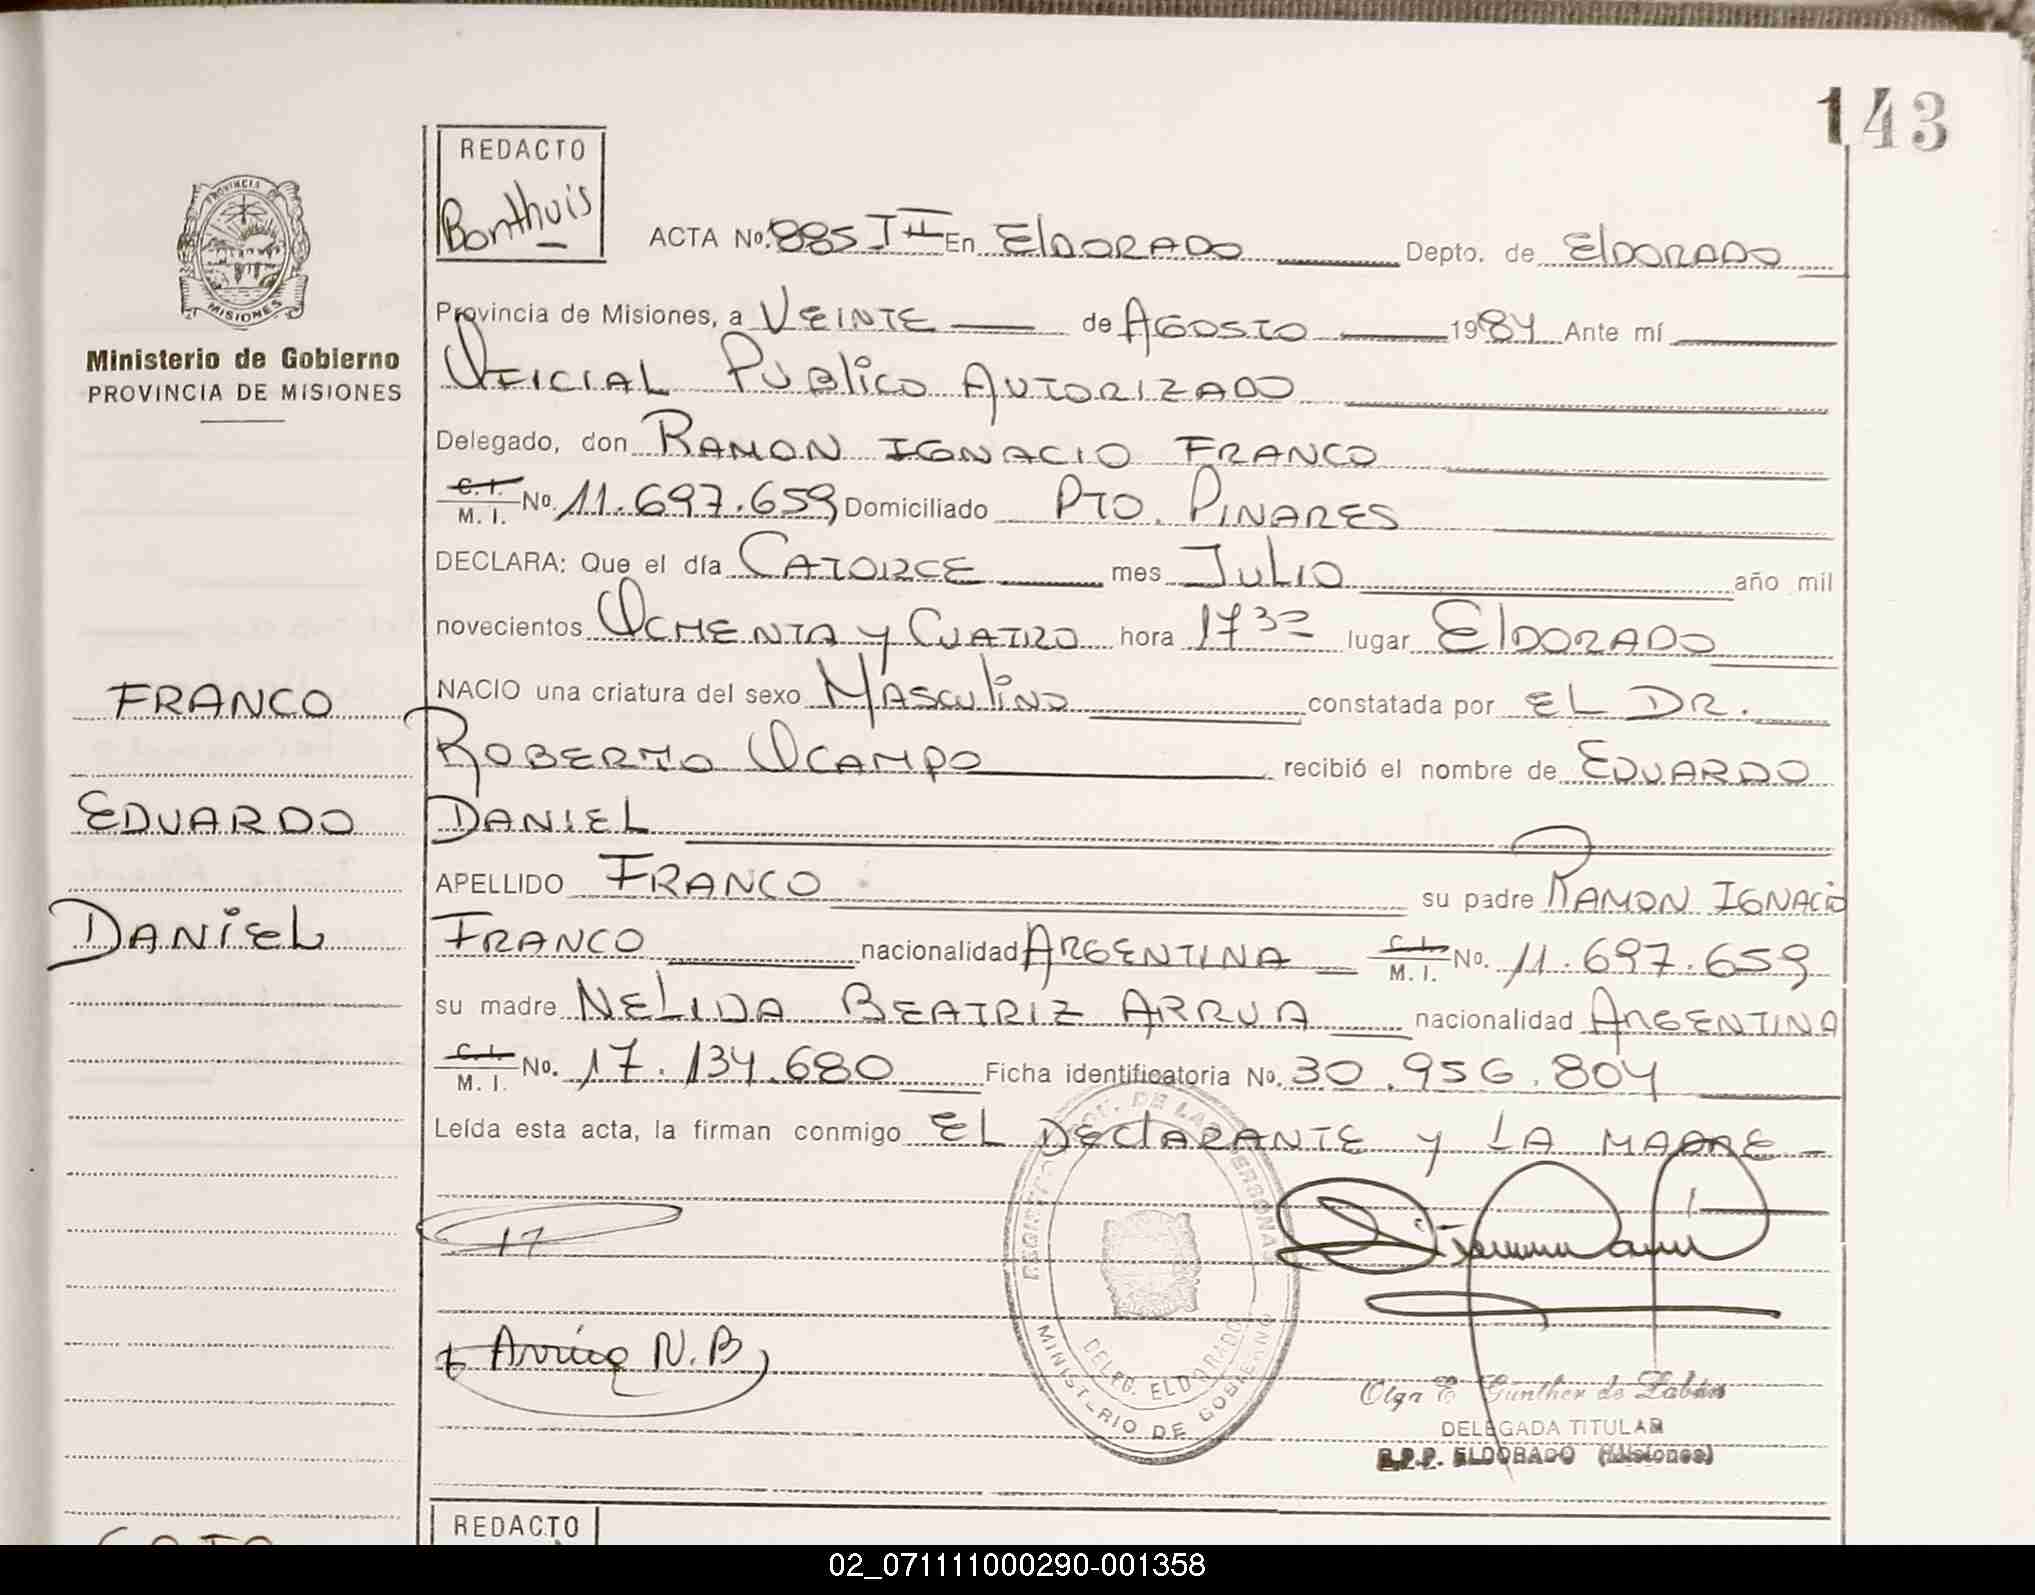 143
REDACTO
Bonthuis
PROVINCIA
MISIONES
Ministerio de Gobierno
PROVINCIA DE MISIONES
ACTA No. 885 I II En ElDORADO Depto. de ElDORADO
Provincia de Misiones, a VEINTE de AGOSTO 1984 Ante mí
OFICIAL PUBLICO AUTORIZADO
Delegado, don RAMON IGNACIO FRANCO
C. I. M. I. No. 11.697.659 Domiciliado PTO. PINARES
DECLARA: Que el día CATORCE mes JULIO año mil
novecientos OCHENTA y CUATRO hora 17 30 lugar ElDORADO
NACIO una criatura del sexo MASCULINO constatada por EL DR.
ROBERTO OCAMPO recibió el nombre de EDUARDO
DANIEL
APELLIDO FRANCO su padre RAMON IGNACIO
FRANCO nacionalidad ARGENTINA C. I. M. I. No. 11.697.659
su madre NELIDA BEATRIZ ARRUA nacionalidad ARGENTINA
C. I. M. I. No. 17.134.680 Ficha identificatoria No. 30.956.804
Leída esta acta, la firman conmigo EL DEClARANTE y LA MADRE
FRANCO
EDUARDO
DANIEL
Arrúa N.B
MINISTERIO DE GOBIERNO
DELEG. ELDORADO
Olga E. Gunther de Zabán
DELEGADA TITULAR
R.P.P. ELDORADO (Misiones)
REDACTO
02_071111000290-001358